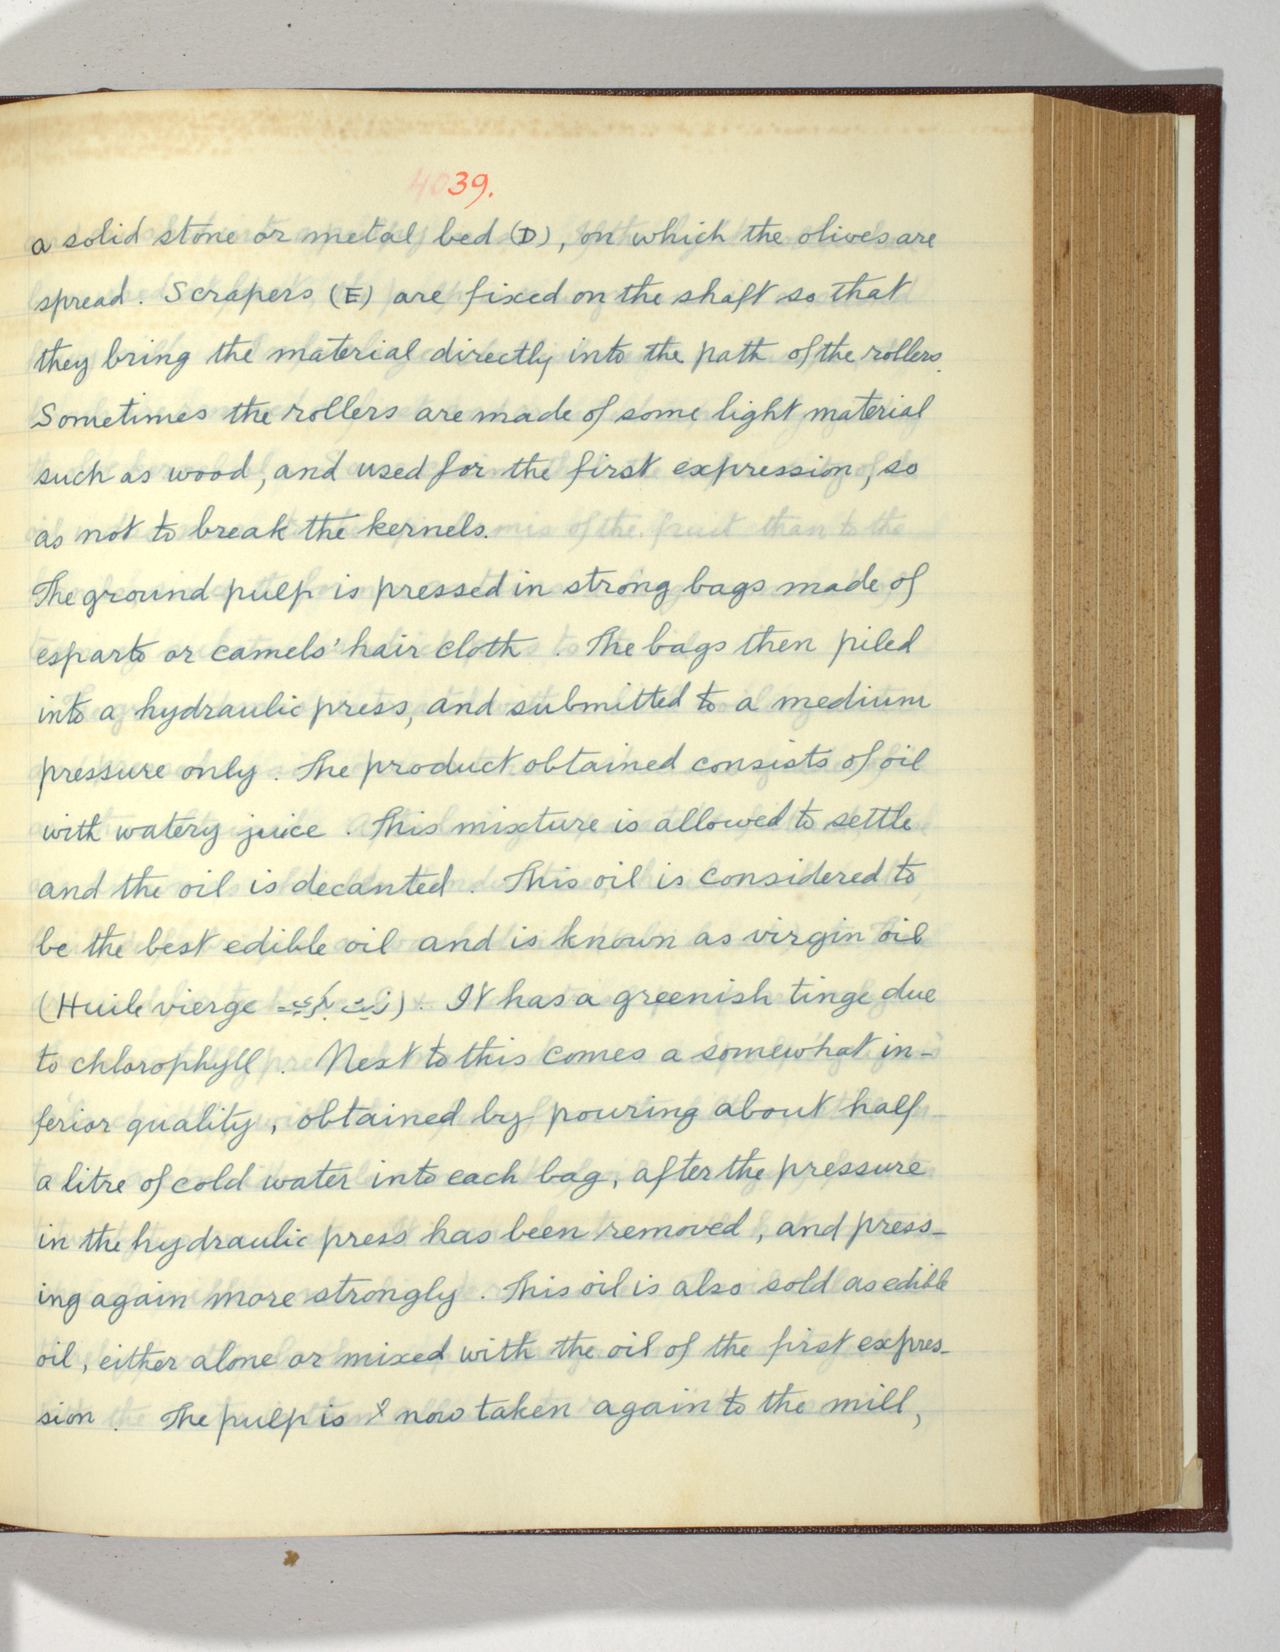 39.
a solid stone or metal bed (D), on which the olives are
spread. Scrapers (E) are fixed on the shaft so that
they bring the material directly into the path of the rollers.
Sometimes the rollers are made of some light material
such as wood, and used for the first expression, so
as not to break the kernels.
The ground pulp is pressed in strong bags made of
esparto or camels' hair cloth. The bags then piled
into a hydraulic press, and submitted to a medium
pressure only. The product obtained consists of oil
with watery juice. This mixture is allowed to settle
and the oil is decanted. This oil is considered to
be the best edible oil and is known as virgin oil
(Huile vierge زيت). It has a greenish tinge due
to chlorophyll. Next to this comes a somewhat in-
ferior quality, obtained by pouring about half
a litre of cold water into each bag, after the pressure
in the hydraulic press has been removed, and press-
ing again more strongly. This oil is also sold as edible
oil, either alone or mixed with the oil of the first expres-
sion. The pulp is now taken again to the mill,